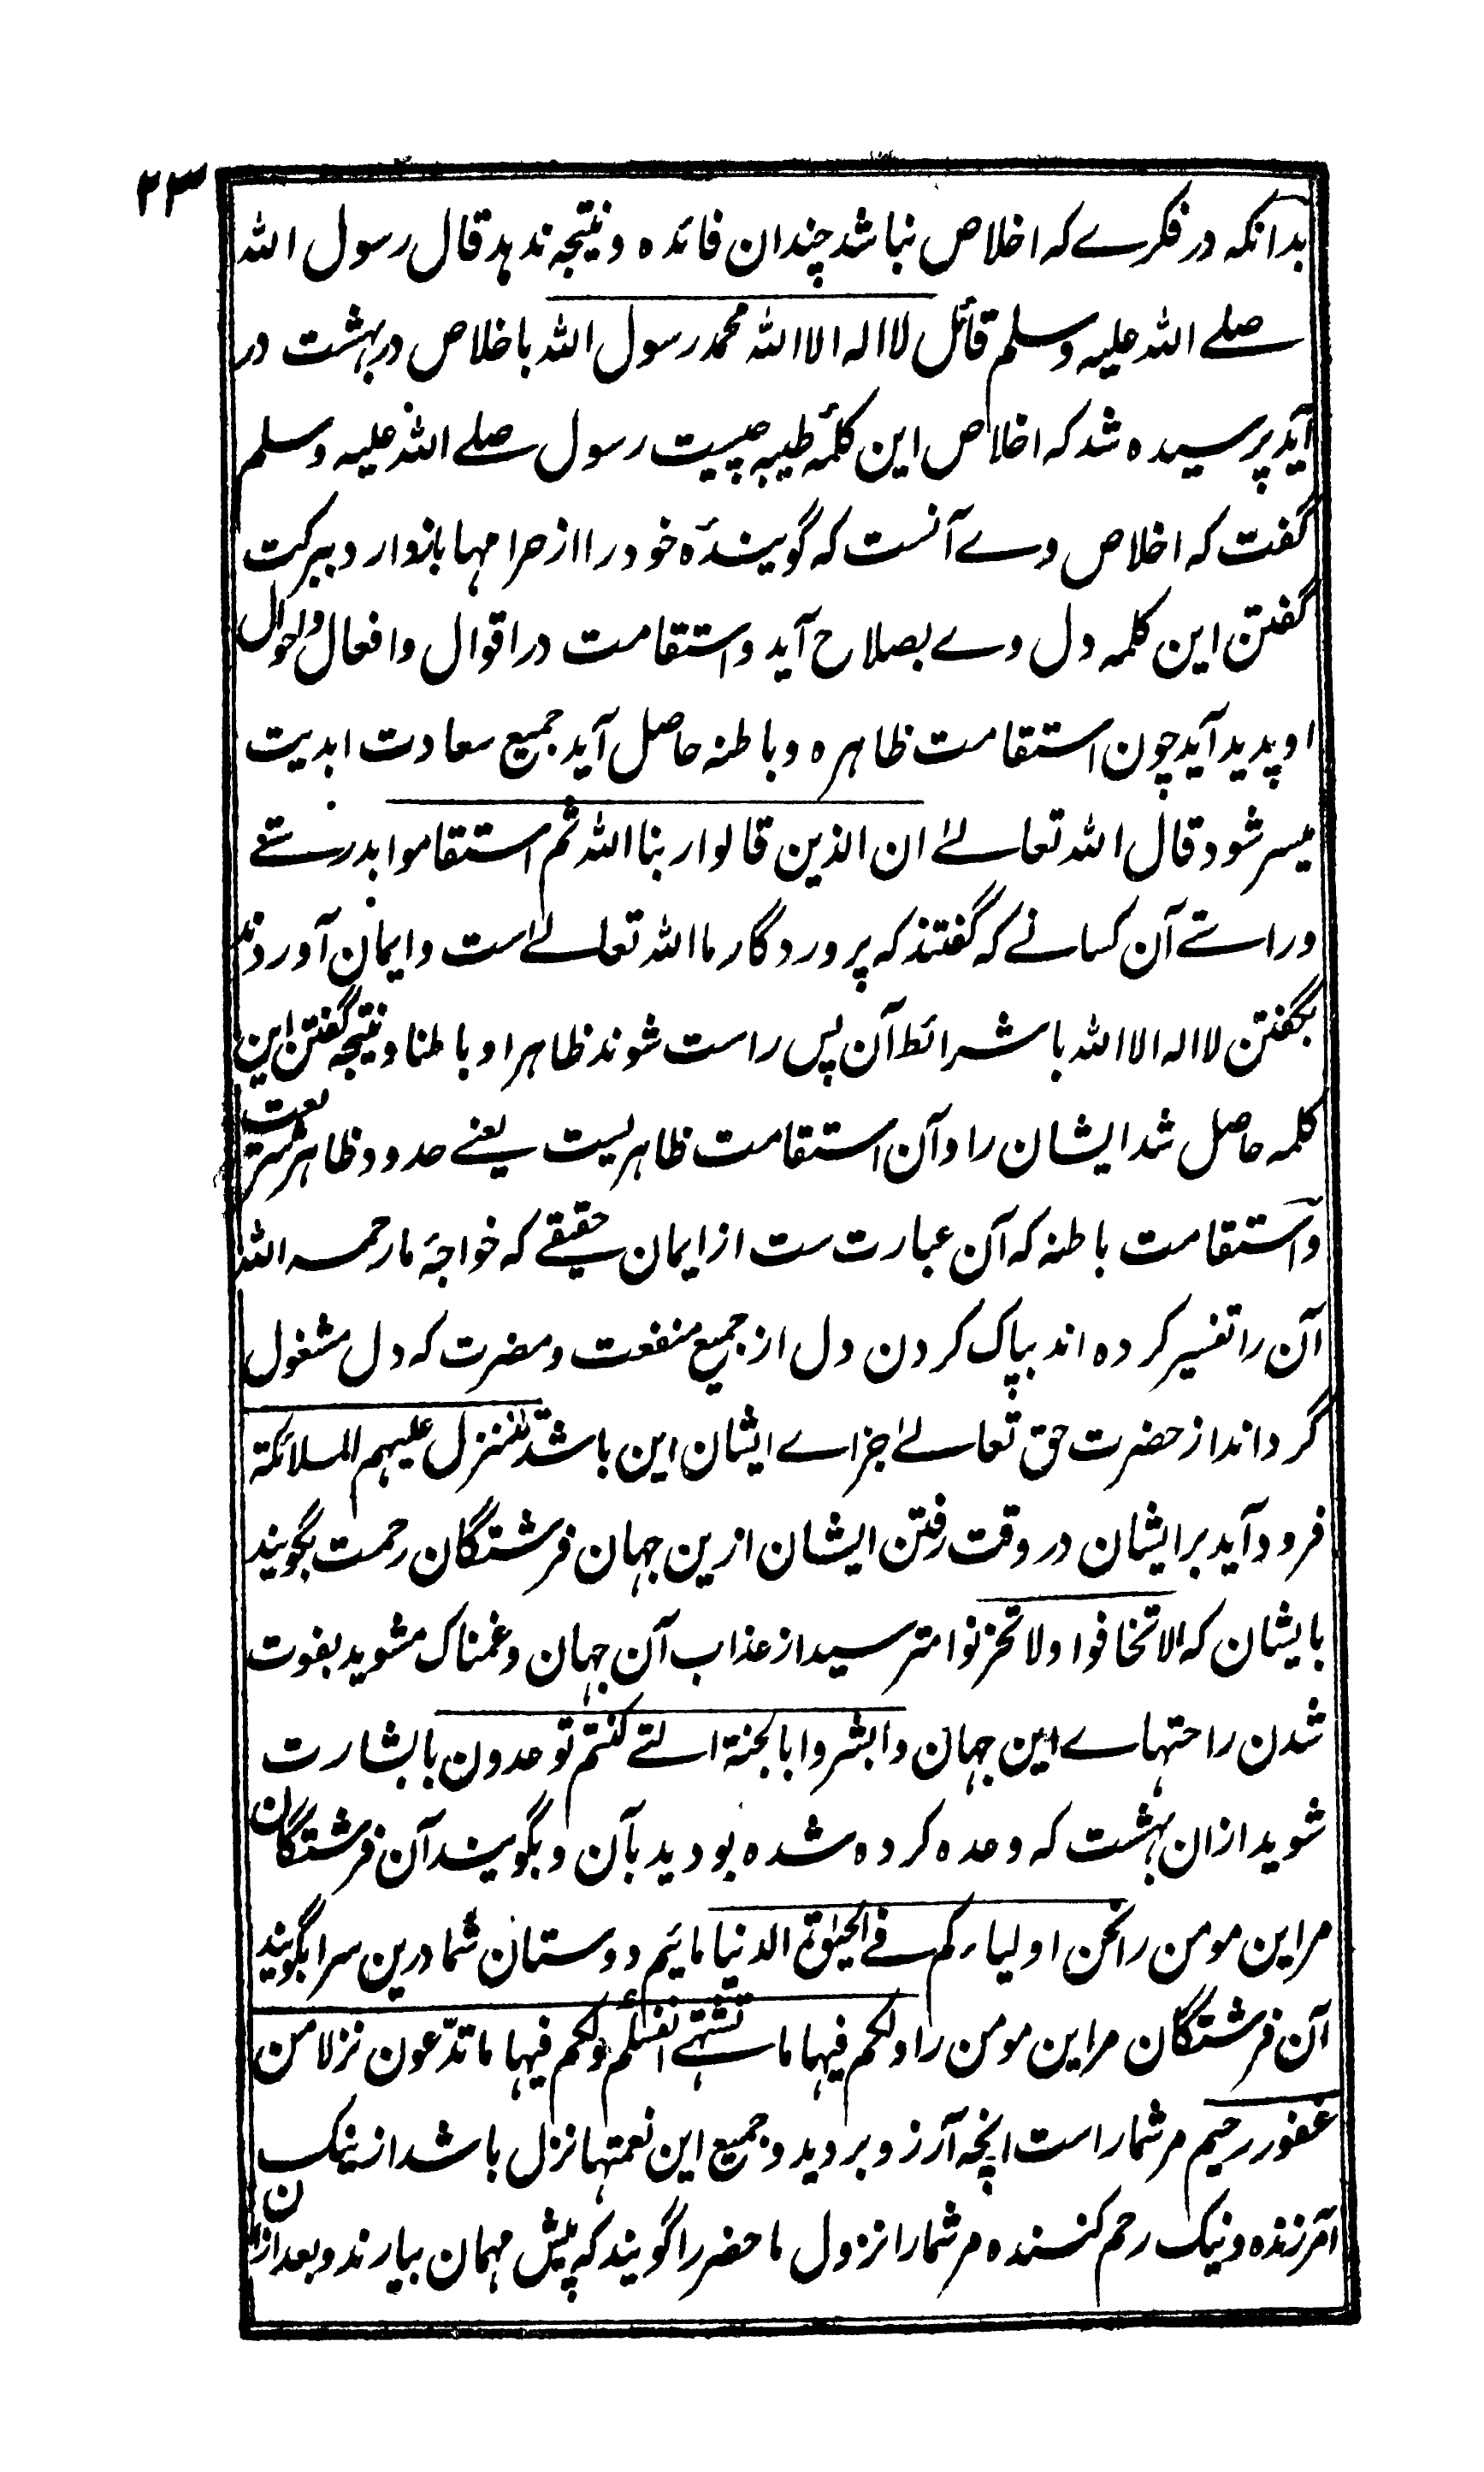 ۲۳
بدانکه در فکرے که اخلاص نباشد چندان فائده و نتیجه ندهد قال رسول الله
صلے الله علیه وسلم قائل لا اله الا الله محمد رسول الله باخلاص در بهشت در
آید پرسیده شد که اخلاص این کلمۂ طیبه چیست رسول صلے الله علیه وسلم
گفت که اخلاص وے آنست که گویندۂ خود را از حرامها باز دارد و ببرکت
گفتن این کلمه دل وے بصلاح آید و استقامت در اقوال و افعال و احوال
او پدید آید چون استقامت ظاهره و باطنه حاصل آید جمیع سعادت ابدیت
میسر شود قال الله تعالےٰ ان الذین قالوا ربنا الله ثم استقاموا بدرستے
و راستے آن کسانے که گفتند که پروردگار ما الله تعالےٰ است و ایمان آوردند
بگفتن لا اله الا الله با شرائط آن پس راست شوند ظاهرا و باطنا و نتیجه گفتن این
کلمه حاصل شد ایشان را و آن استقامت ظاهریست یعنے حدود ظاهر شریعت
و استقامت باطنه که آن عبارت ست از ایمان حقیقے که خواجۂ ما رحمه الله
آن را تفسیر کرده اند بپاک کردن دل از جمیع منفعت و مضرت که دل مشغول
گرداند از حضرت حق تعالےٰ جزاے ایشان این باشد تتنزل علیهم الملائکة
فرود آید بر ایشان در وقت رفتن ایشان ازین جهان فرشتگان رحمت بگویند
بایشان که الا تخافوا ولا تحزنوا مترسید از عذاب آن جهان و غمناک مشوید بفوت
شدن راحتهاے این جهان وابشروا بالجنة التے کنتم توعدون با بشارت
شوید ازان بهشت که وعده کرده شده بودید بآن و بگویند آن فرشتگان
مر این مومن را نحن اولیاءکم فے الحیوٰة الدنیا مائیم دوستان شما درین سرا بگویند
آن فرشتگان مر این مومن را ولکم فیها ما تشتهے انفسکم ولکم فیها ما تدّعون نزلا من
غفور رحیم مر شما راست انچه آرزو بردید و جمیع این نعمتها نزل باشد از نیک
آمرزنده و نیک رحم کننده مر شما را نزول ما حضر را گویند که پیش مهمان بیارند و بعد ازان